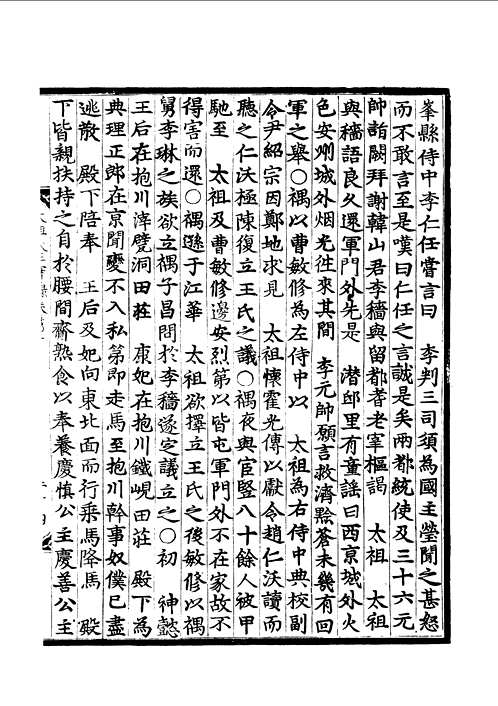 峯縣侍中李仁任嘗言曰　李判三司須為國主瑩聞之甚怒
而不敢言至是嘆曰仁任之言誠是矣兩都統使及三十六元
帥詣闕拜謝韓山君李穡與留都耆老宰樞謁　太祖　太祖
與穡語良久還軍門外先是　潛邸里有童謠曰西京城外火
色安州城外烟光往來其間　李元帥願言救濟黔蒼未幾有回
軍之舉○禑以曹敏修為左侍中以　太祖為右侍中典校副
令尹紹宗因鄭地求見　太祖懷霍光傳以獻令趙仁沃讀而
聽之仁沃極陳復立王氏之議○禑夜與宦竪八十餘人被甲
馳至　太祖及曹敏修邊安烈第以皆屯軍門外不在家故不
得害而還○禑遜于江華　太祖欲擇立王氏之後敏修以禑
舅李琳之族欲立禑子昌問於李穡遂定議立之○初　神懿
王后在抱川滓甓洞田莊　康妃在抱川鐵峴田莊　殿下為
典理正郎在京聞變不入私第即走馬至抱川幹事奴僕已盡
逃散　殿下陪奉　王后及妃向東北面而行乘馬降馬　殿
下皆親扶持之自於腰間齎熟食以奉養慶愼公主慶善公主